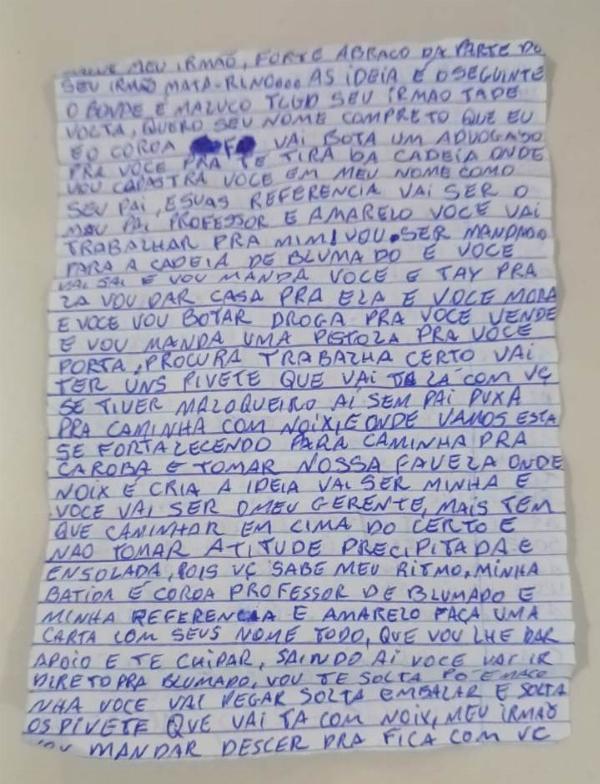 MEU IRMÃO, FORTE ABRAÇO DA PARTE DO
SEU IRMÃO MATA-RINDO.. AS IDEIA É O SEGUINTE
O BONDE É MALUCO TLGD SEU IRMÃO TADE
VOLTA, QUERO SEU NOME COMPRETO QUE EU
E O COROA VAI BOTA UM ADVOGADO
PRA VOCE PRA TE TIRA DA CADEIA ONDE
VOU CAPASTRA VOCE EM MEU NOME COMO
SEU PAI, E SUAS REFERENCIA VAI SER O
MEU PAI PROFESSOR E AMARELO VOCE VAI
TRABALHAR PRA MIM, VOU SER MANDADO
PARA A CADEIA DE BLUMADO E VOCE
VAI SAI E VOU MANDA VOCE E TAY PRA
LA VOU DAR CASA PRA ELA E VOCE MORA
E VOCE VOU BOTAR DROGA PRA VOCE VENDE
E VOU MANDA UMA PISTOLA PRA VOCE
PORTA, PROCURA TRABALHA CERTO VAI
TER UNS PIVETE QUE VAI TA LÁ COM VÇ
SE TIVER MALOQUEIRO AI SEM PAI PUXA
PRA CAMINHA COM NOIX, E ONDE VAMOS ESTA
SE FORTALECENDO PARA CAMINHA PRA
CAROBA E TOMAR NOSSA FAVELA ONDE
NOIX É CRIA A IDEIA VAI SER MINHA E
VOCE VAI SER O MEU GERENTE, MAIS TEM
QUE CAMINHAR EM CIMA DO CERTO E
NÃO TOMAR ATITUDE PRECIPITADA E
ENSOLADA, POIS VÇ SABE MEU RITMO, MINHA
BATIDA É COROA PROFESSOR DE BLUMADO E
MINHA REFERENCIA E AMARELO FAÇA UMA
CARTA COM SEUS NOME TODO, QUE VOU LHE DAR
APOIO E TE CUIDAR, SAINDO AI VOCE VAI IR
DIRETO PRA BLUMADO, VOU TE SOLTA PÓ E MACO
NHA VOCE VAI PEGAR SOLTA EMBALAR E SOLTA
OS PIVETE QUE VAI TA COM NOIX, MEU IRMÃO
VOU MANDAR DESCER PRA FICA COM VC